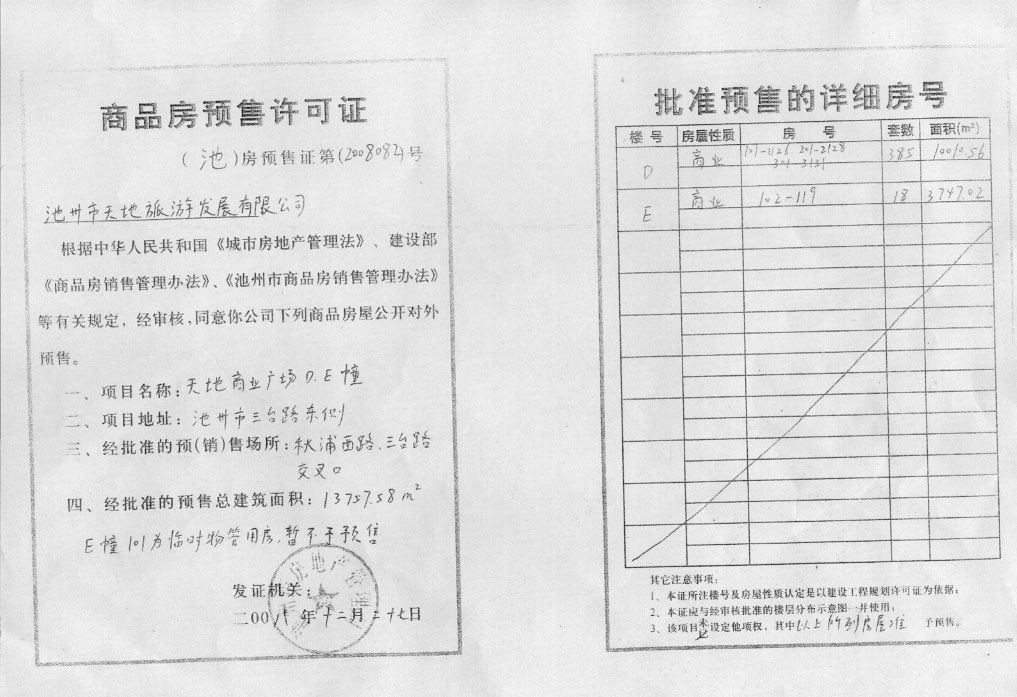 商品房预售许可证
(池)房预售证第(2008082)号
池州市天地旅游发展有限公司
根据中华人民共和国《城市房地产管理法》、建设部
《商品房销售管理办法》、《池州市商品房销售管理办法》
等有关规定，经审核，同意你公司下列商品房屋公开对外
预售。
一、项目名称：天地商业广场D.E幢
二、项目地址：池州市三台路东侧
三、经批准的预(销)售场所：秋浦西路、三台路
交叉口
四、经批准的预售总建筑面积：13757.58m²
E幢101为临时物管用房，暂不予预售
发证机关：
房地产管理
二00八年十二月二十七日
批准预售的详细房号
楼号 房屋性质 房号 套数 面积(m²)
D 商业 101-1126 201-2128 385 10010.56
301-3131
E 商业 102-119 18 3747.02
其它注意事项：
1、本证所注楼号及房屋性质认定是以建设工程规划许可证为依据；
2、本证应与经审核批准的楼层分布示意图一并使用；
3、该项目未设定他项权，其中以上所列房屋准予预售。